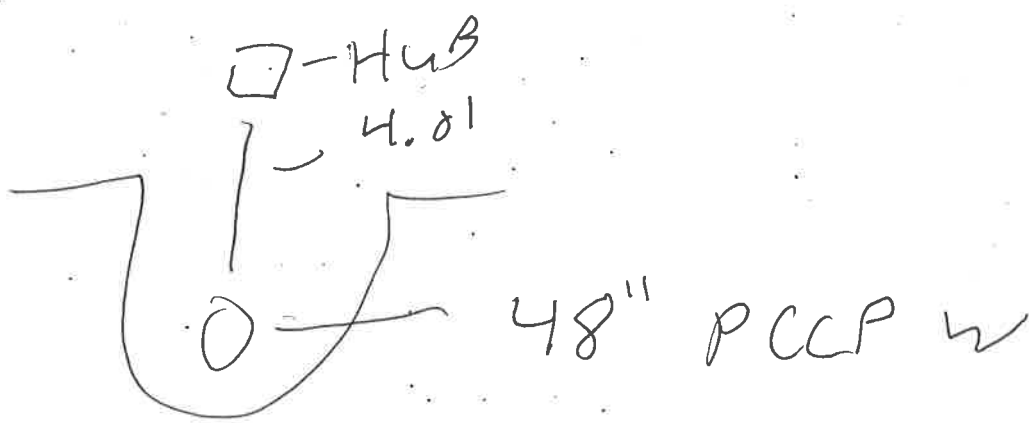 -HUB
4.01
48" PCCP W